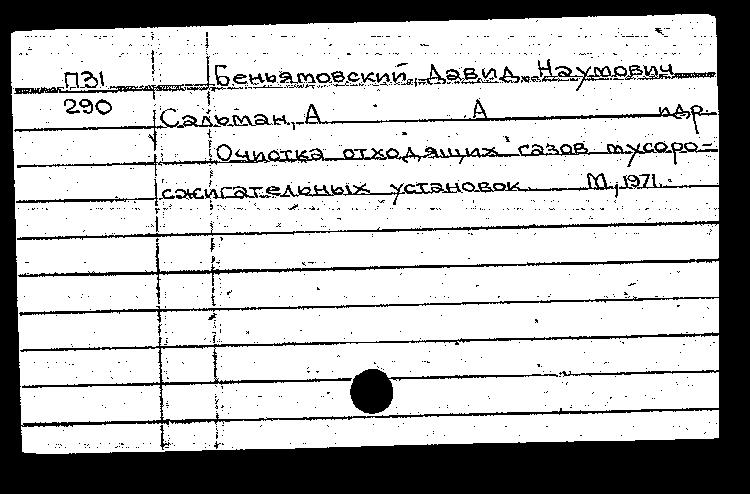 П31 Беньямовский, Давид Наумович
290 Сальман, А А идр.
Очистка отходящих газов мусоро-
сжигательных установок М., 1971.